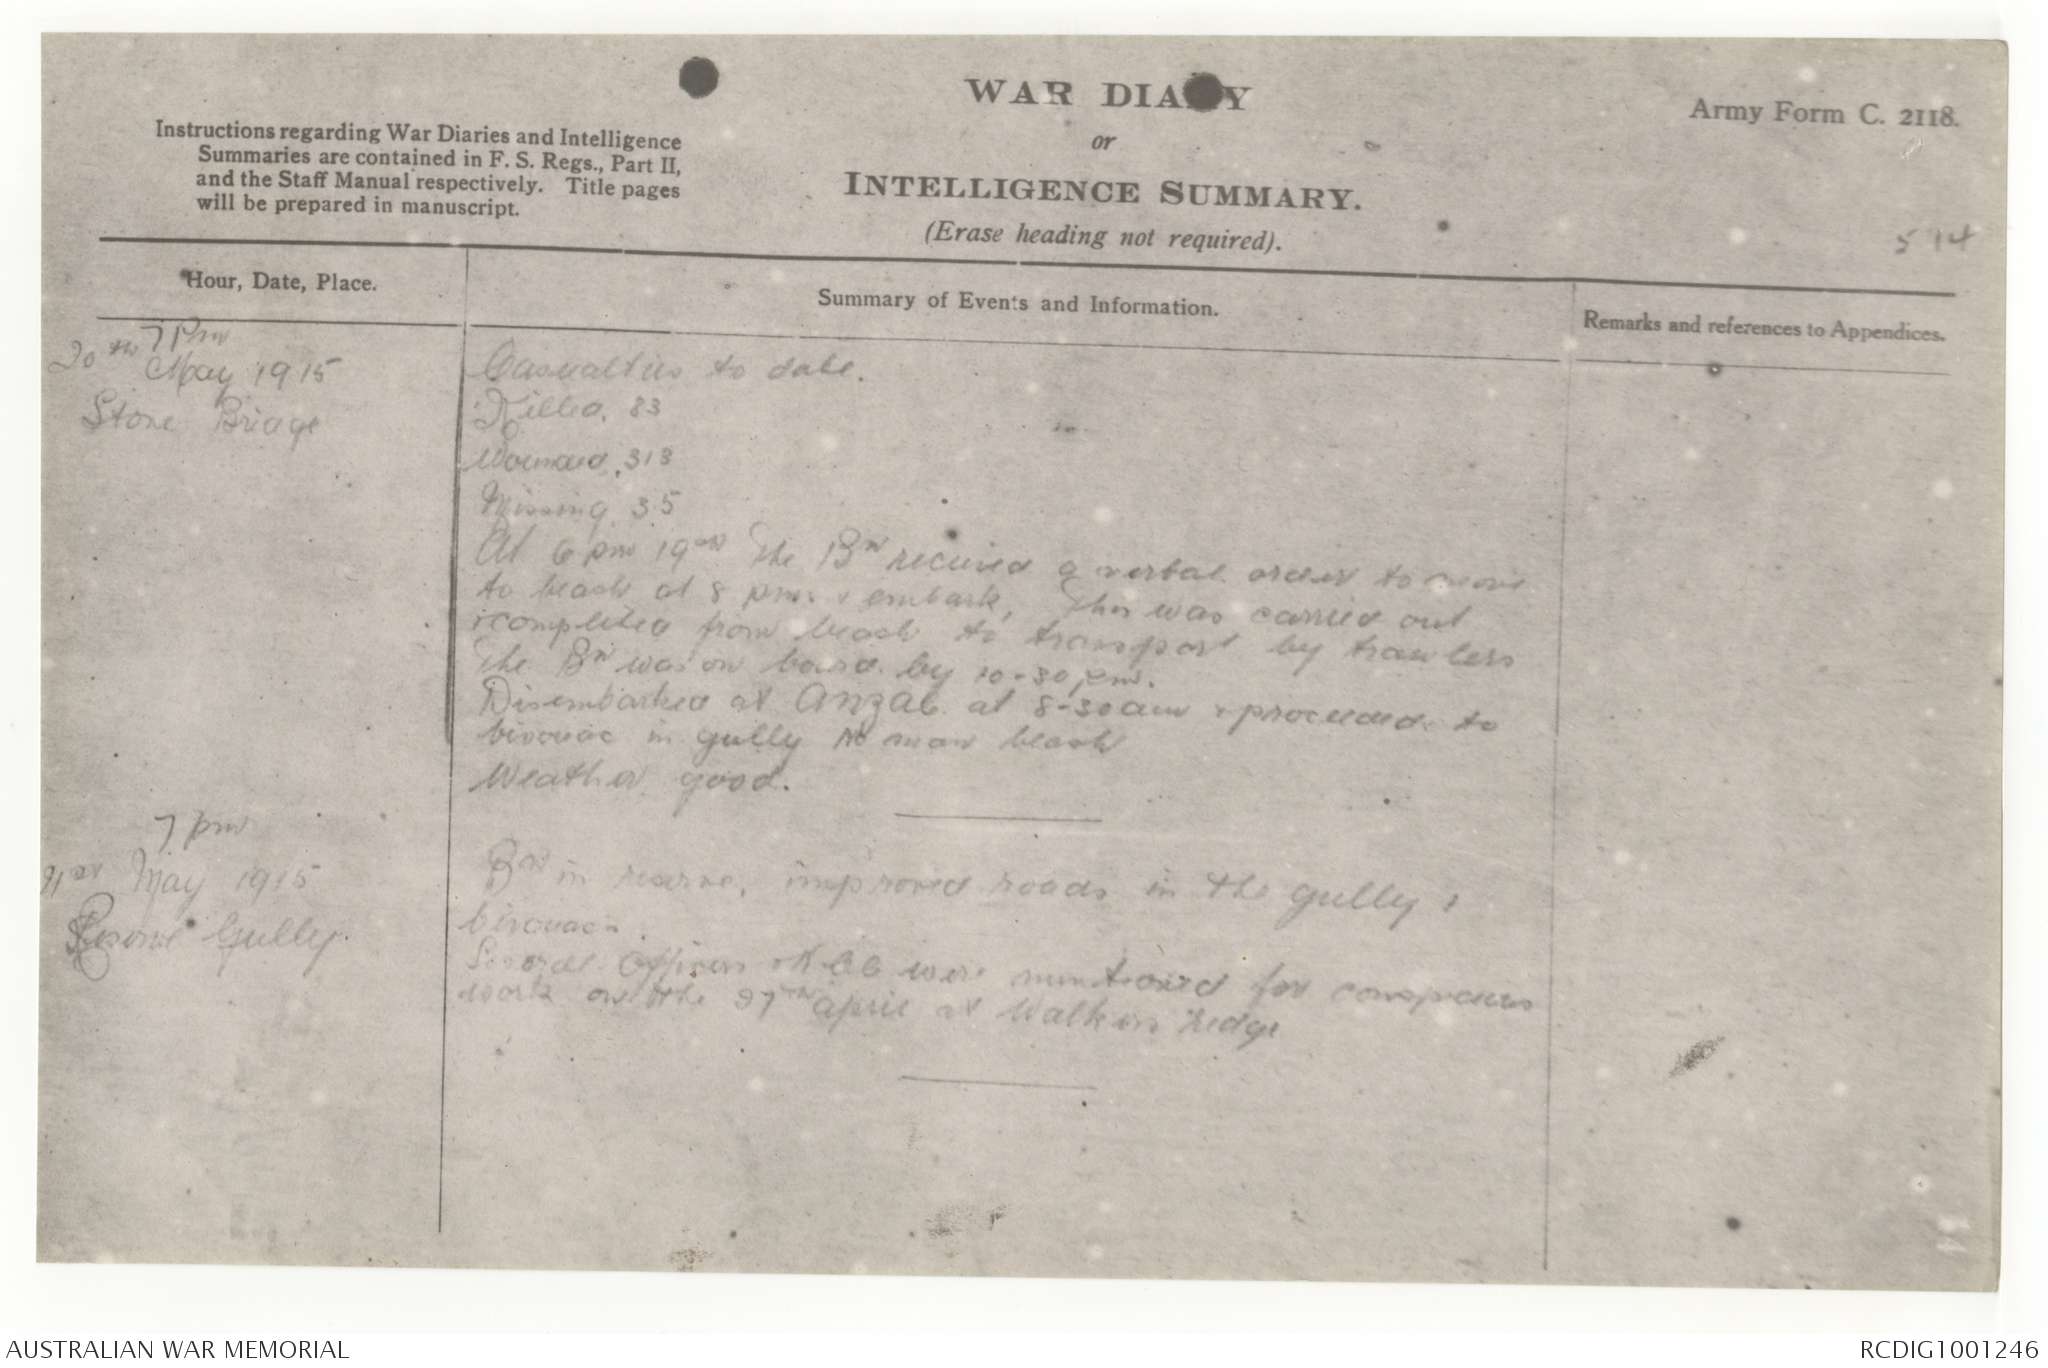 WAR DIARY
or
INTELLIGENCE SUMMARY.
(Erase heading not required).
Instructions regarding War Diaries and Intelligence
Summaries are contained in F. S. Regs., Part II,
and the Staff Manual respectively. Title pages
will be prepared in manuscript.
Army Form C. 2118.
5 14
Hour, Date, Place.
Summary of Events and Information.
Remarks and references to Appendices.
7 Pm
20th May 1915
Stone Bridge
Casualties to date.
Killed. 83
Wounded. 313
Missing 35
At 6 pm 19th The Bn received a verbal order to move
to beach at 8 pm. & embark, This was carried out
& completed from beach to transport by trawlers
The Bn was on board by 10-30 pm.
Disembarked at Anzac at 8-30am & proceeded to
bivouac in gully main beach
Weather good.
7 pm
21st May 1915
Reserve Gully.
Bn in reserve, improved roads in the gully &
bivouacs.
Several Officers were mentioned for conspicuous
work on the 27th April at Walkers Ridge
14
AUSTRALIAN WAR MEMORIAL
RCDIG1001246